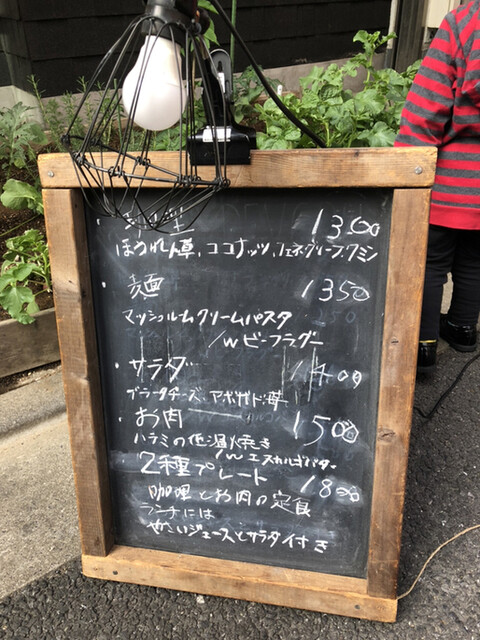 ・ 1300
ほうれん草、ココナッツ、フェネグリーク、クミン
・麺 1350
マッシュルームクリームパスタ
/w ビーフラグー
・サラダ 1400
ブラータチーズ、アボガド、苺
・お肉 1500
ハラミの低温焼き
/w エスカルゴバター
・2種プレート 1800
咖喱とお肉の定食
ランチには
やさいジュースとサラダ付き